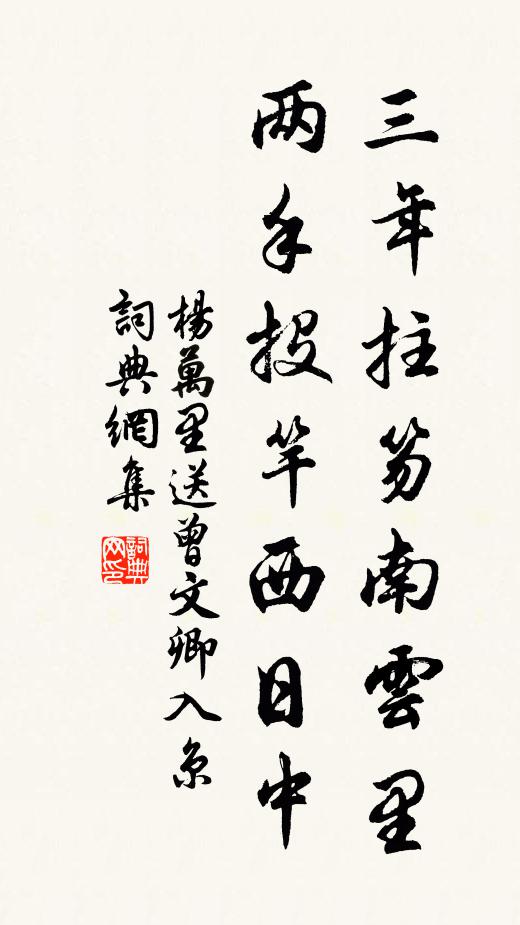 三年拄笏南雲里
两手投竿西日中
楊萬里送曾文卿入京
詞典網集
詞典網印